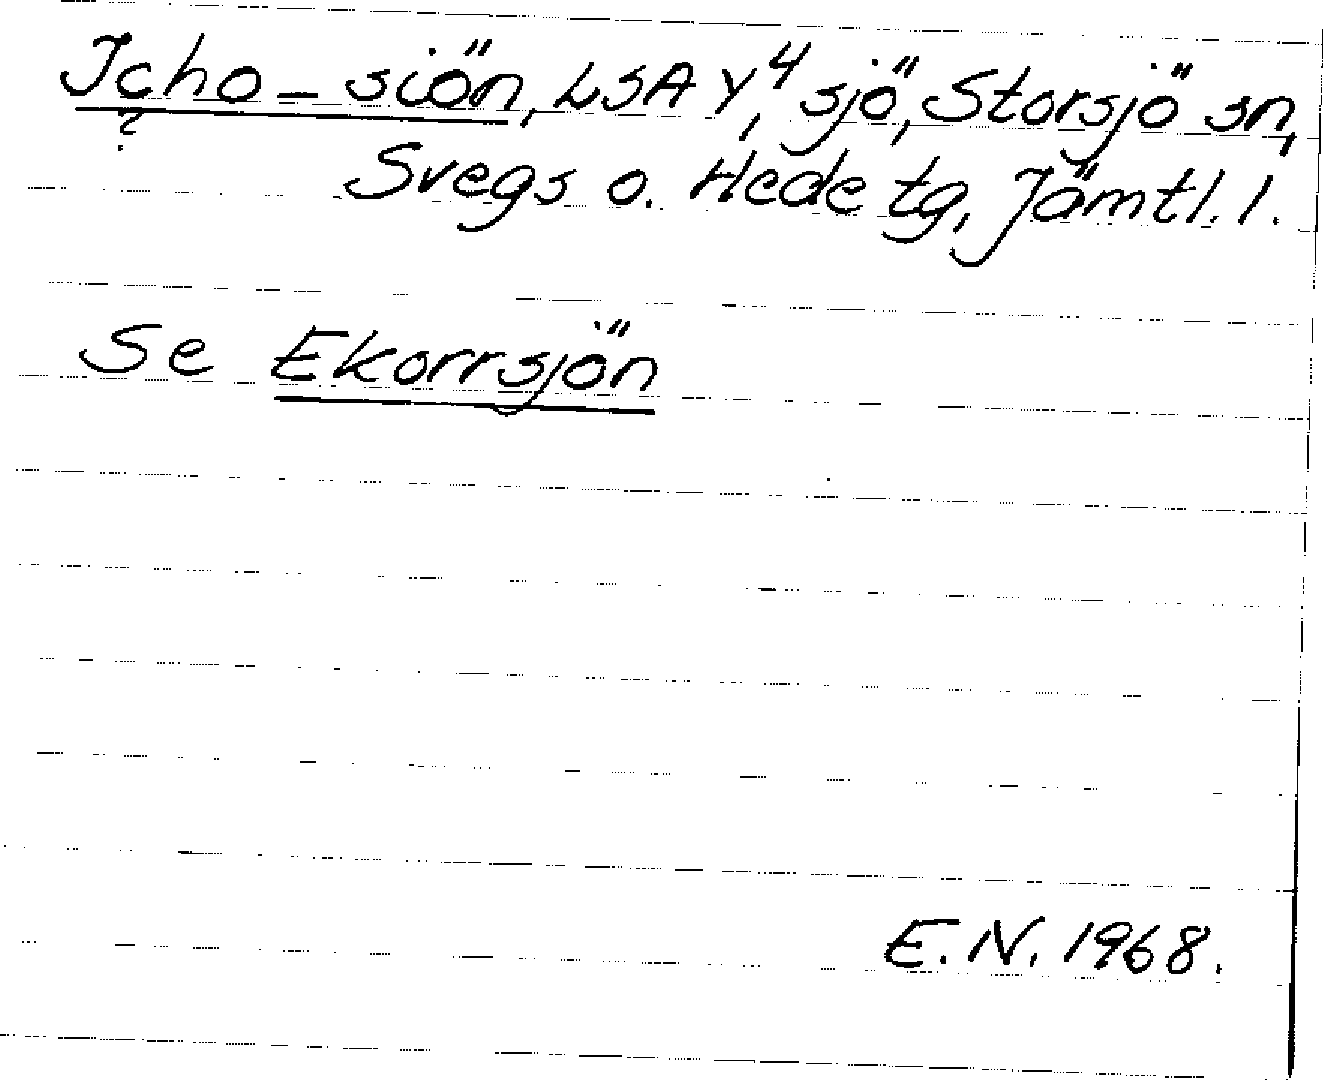 Jcho-siön, LSA Y⁴, sjö, Storsjö sn,
?
Svegs o. Hede tg, Jämtl. l.
Se Ekorrsjön
E.N. 1968.